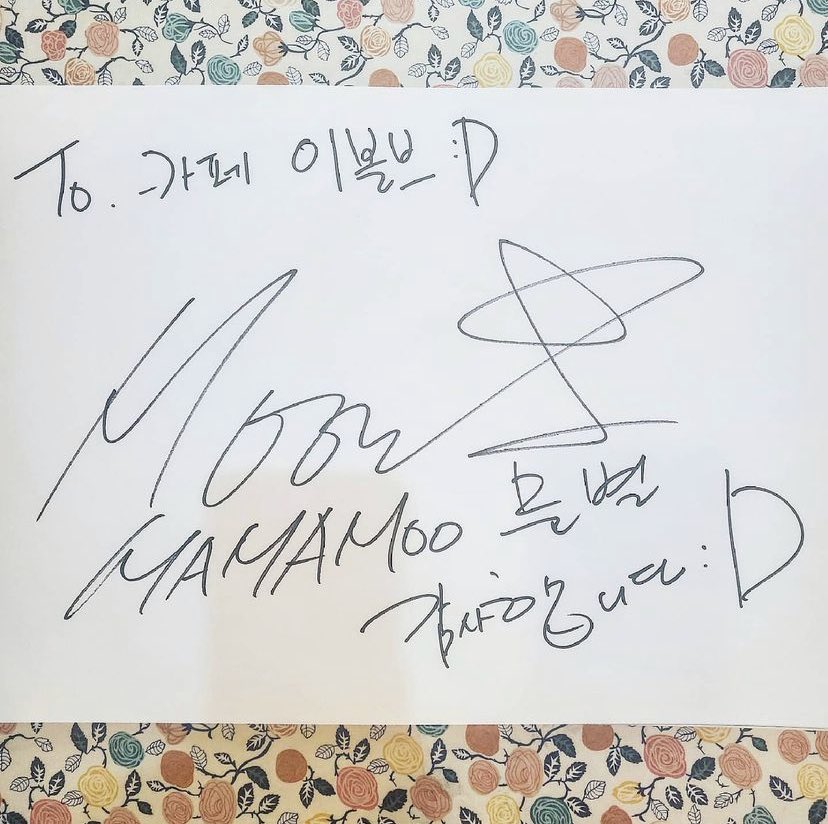 To. 카페 이볼브 :D
Moon
MAMAMOO 문별
감사합니다 :D